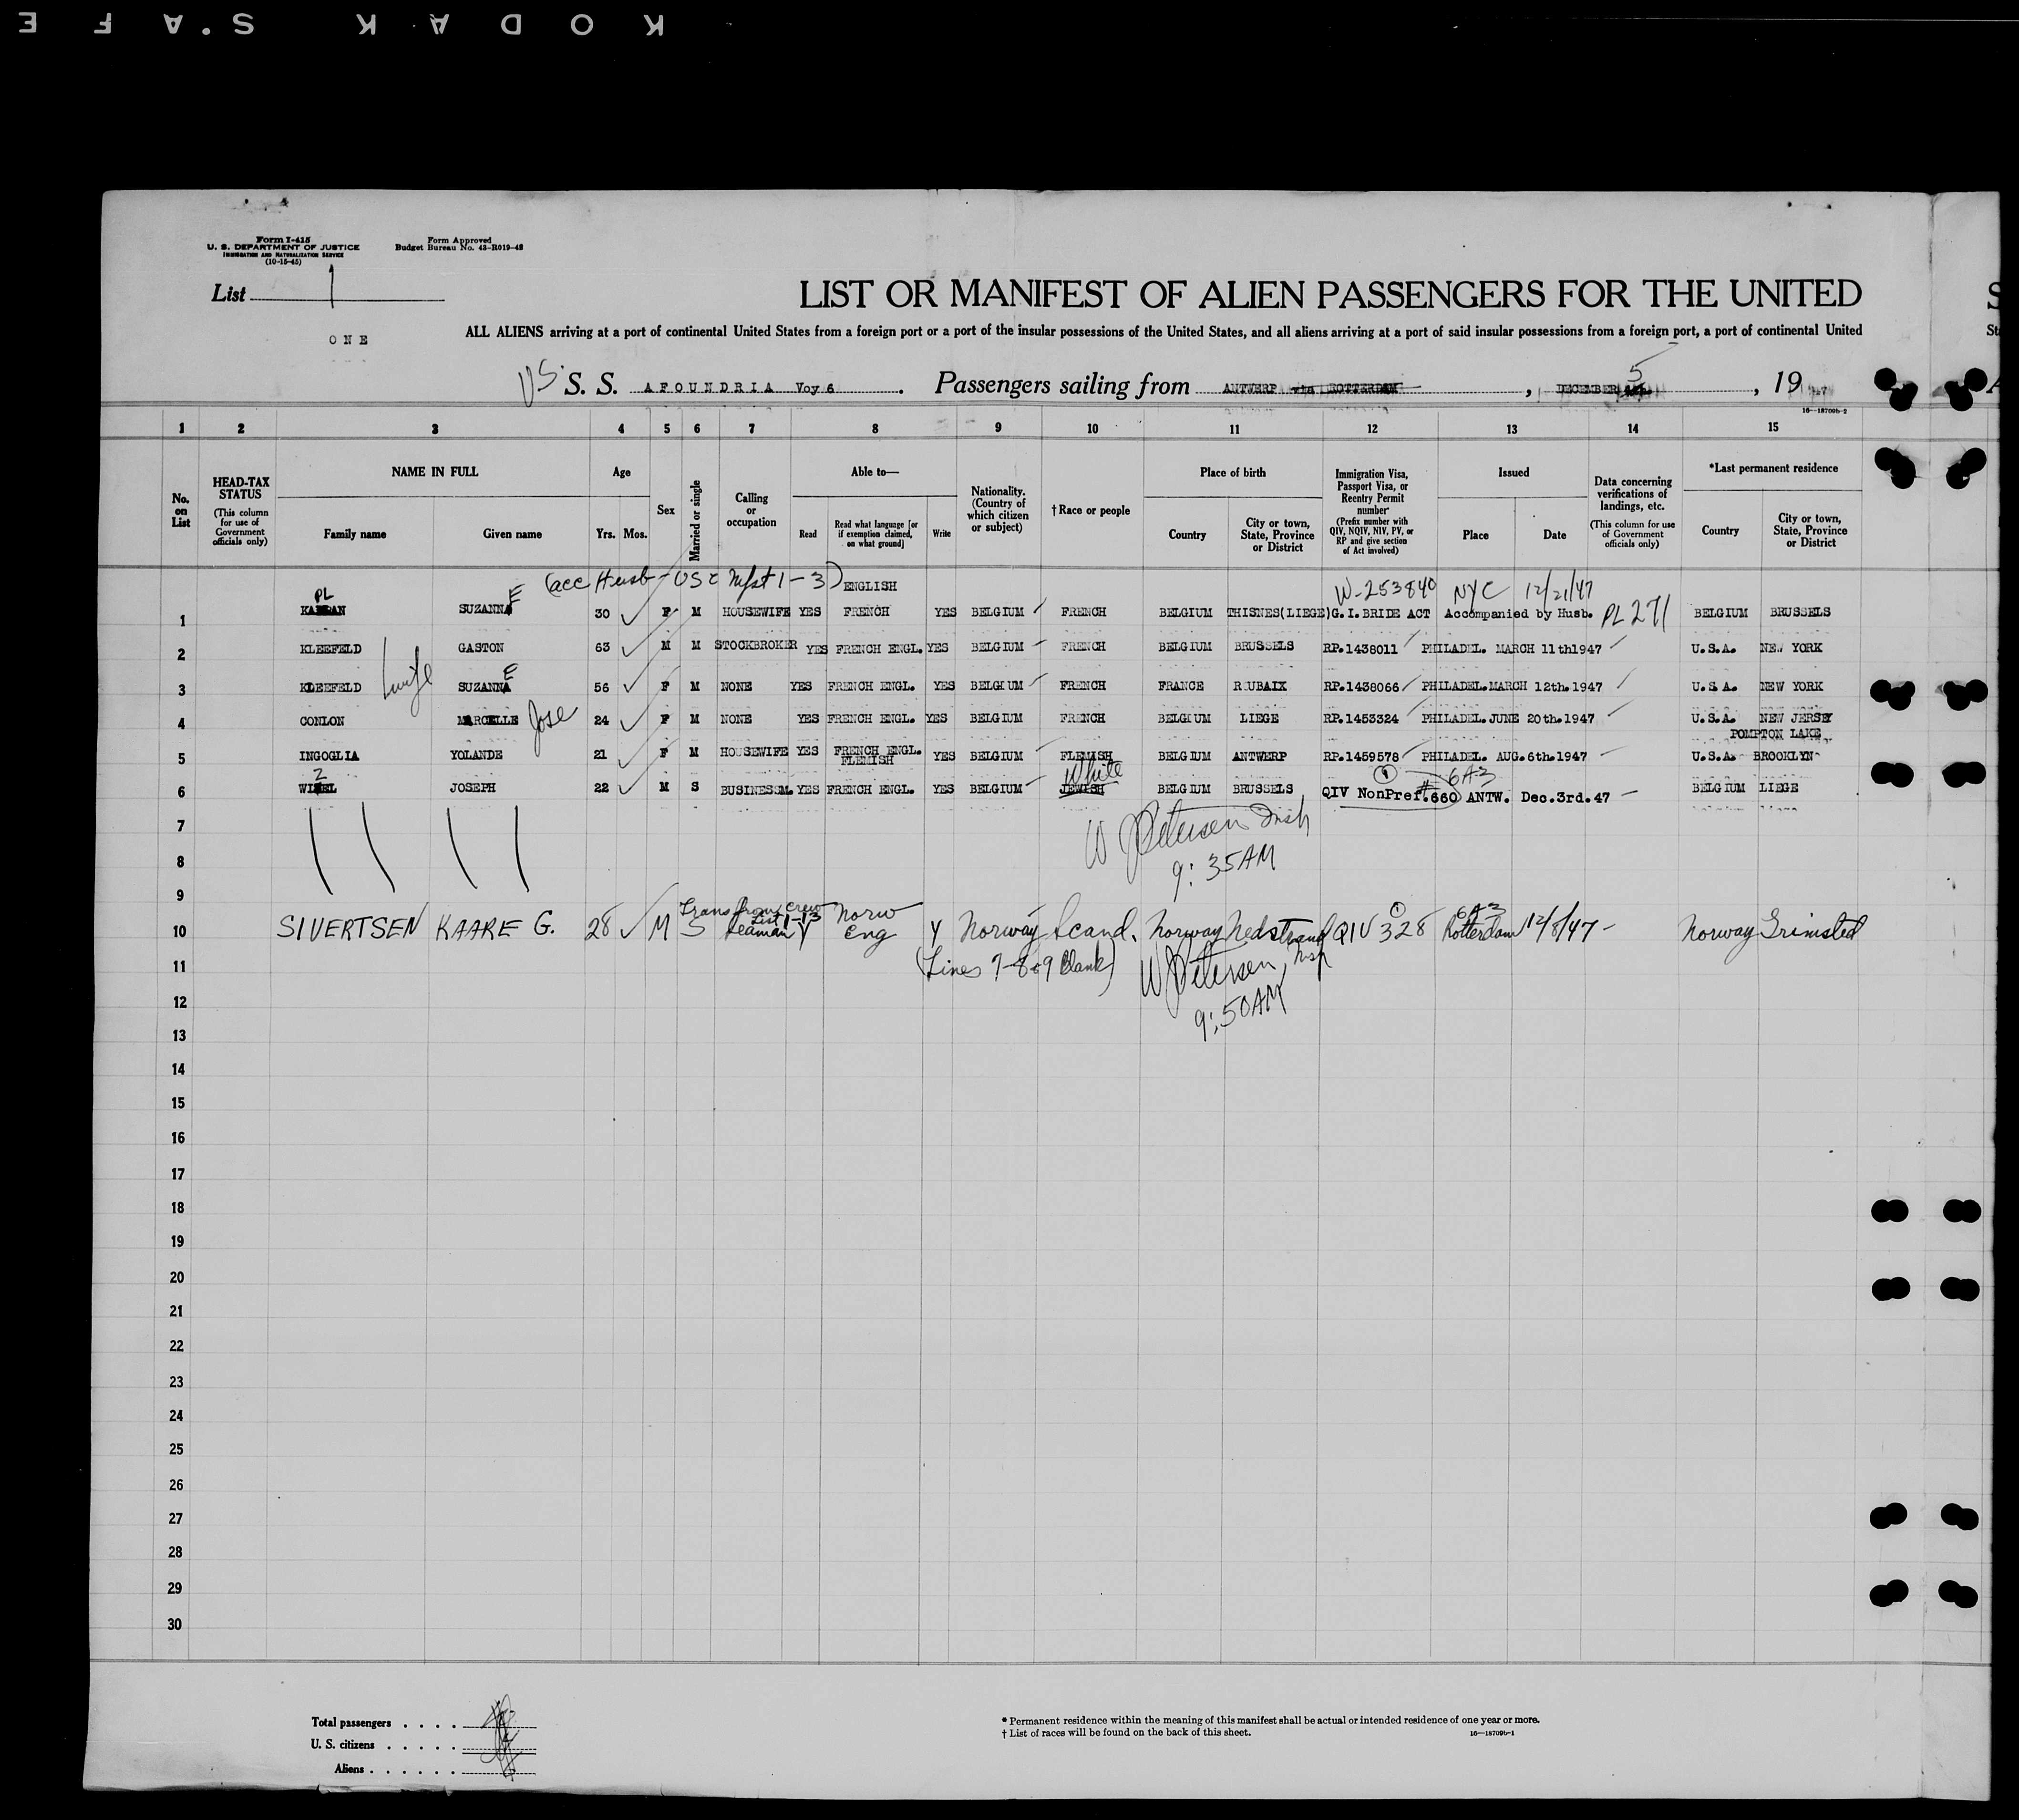 KODAK S.AFE
Form I-415
U. S. DEPARTMENT OF JUSTICE
IMMIGRATION AND NATURALIZATION SERVICE
(10-15-45)
Form Approved
Budget Bureau No. 43-R019-42
List 1
ONE
LIST OR MANIFEST OF ALIEN PASSENGERS FOR THE UNITED
ALL ALIENS arriving at a port of continental United States from a foreign port or a port of the insular possessions of the United States, and all aliens arriving at a port of said insular possessions from a foreign port, a port of continental United
US. S. S. AFOUNDRIA Voy 6. Passengers sailing from ANTWERP via ROTTERDAM, DECEMBER 5, 1947
16—18709b-2
1 2 3 4 5 6 7 8 9 10 11 12 13 14 15
No. on List
HEAD-TAX STATUS (This column for use of Government officials only)
NAME IN FULL
Family name Given name
Age
Yrs. Mos.
Sex
Married or single
Calling or occupation
Able to—
Read
Read what language [or if exemption claimed, on what ground]
Write
Nationality. (Country of which citizen or subject)
†Race or people
Place of birth
Country
City or town, State, Province or District
Immigration Visa, Passport Visa, or Reentry Permit number (Prefix number with QIV, NQIV, NIV, PV, or RP and give section of Act involved)
Issued
Place Date
Data concerning verifications of landings, etc. (This column for use of Government officials only)
*Last permanent residence
Country
City or town, State, Province or District
(acc Husb - USC Mfst 1-3) ENGLISH W-253840 NYC 12/21/47
PL E
1 SUZANN 30 F M HOUSEWIFE YES FRENCH YES BELGIUM FRENCH BELGIUM THISNES(LIEGE) G.I.BRIDE ACT Accompanied by Husb. PL 271 BELGIUM BRUSSELS
2 KLEEFELD GASTON 63 M M STOCKBROKER YES FRENCH ENGL. YES BELGIUM FRENCH BELGIUM BRUSSELS RP.1438011 PHILADEL. MARCH 11th1947 U.S.A. NEW YORK
3 KLEEFELD wife SUZANNE 56 F M NONE YES FRENCH ENGL. YES BELGIUM FRENCH FRANCE ROUBAIX RP.1438066 PHILADEL.MARCH 12th.1947 U.S.A. NEW YORK
4 CONLON MARCELLE Jose 24 F M NONE YES FRENCH ENGL. YES BELGIUM FRENCH BELGIUM LIEGE RP.1453324 PHILADEL.JUNE 20th.1947 U.S.A. NEW JERSEY
POMPTON LAKE
5 INGOGLIA YOLANDE 21 F M HOUSEWIFE YES FRENCH ENGL. FLEMISH YES BELGIUM FLEMISH BELGIUM ANTWERP RP.1459578 PHILADEL. AUG.6th.1947 U.S.A. BROOKLYN
Z White 1 6A3
6 JOSEPH 22 M S BUSINESSM. YES FRENCH ENGL. YES BELGIUM JEWISH BELGIUM BRUSSELS QIV NonPref. # 660 ANTW. Dec.3rd.47 BELGIUM LIEGE
7
W Petersen Insp
8
9:35AM
9
Trans from crew List 1-13 1 6A3
10 SIVERTSEN KAARE G. 28 M S Seaman Y Norw Eng Y Norway Scand. Norway Nedstrand QIV 328 Rotterdam 12/8/47 - Norway Grimsted
11 (Lines 7-8-9 Blank) W Petersen Insp
12
9:50AM
13
14
15
16
17
18
19
20
21
22
23
24
25
26
27
28
29
30
Total passengers . . . .
U. S. citizens . . . . .
Aliens . . . . . .
* Permanent residence within the meaning of this manifest shall be actual or intended residence of one year or more.
† List of races will be found on the back of this sheet.
16—18709b-1